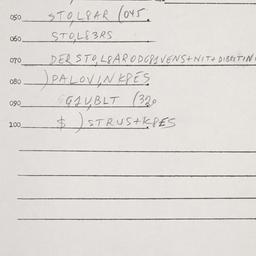 050 STO,L8AR (045.
060 STO,L83RS
070 DER STO,L8ARODG81VENS+NIT+DIBETIN
080 )PALOV,NKPES
090 G1UBLT (320
100 $ )STRUS+KPES